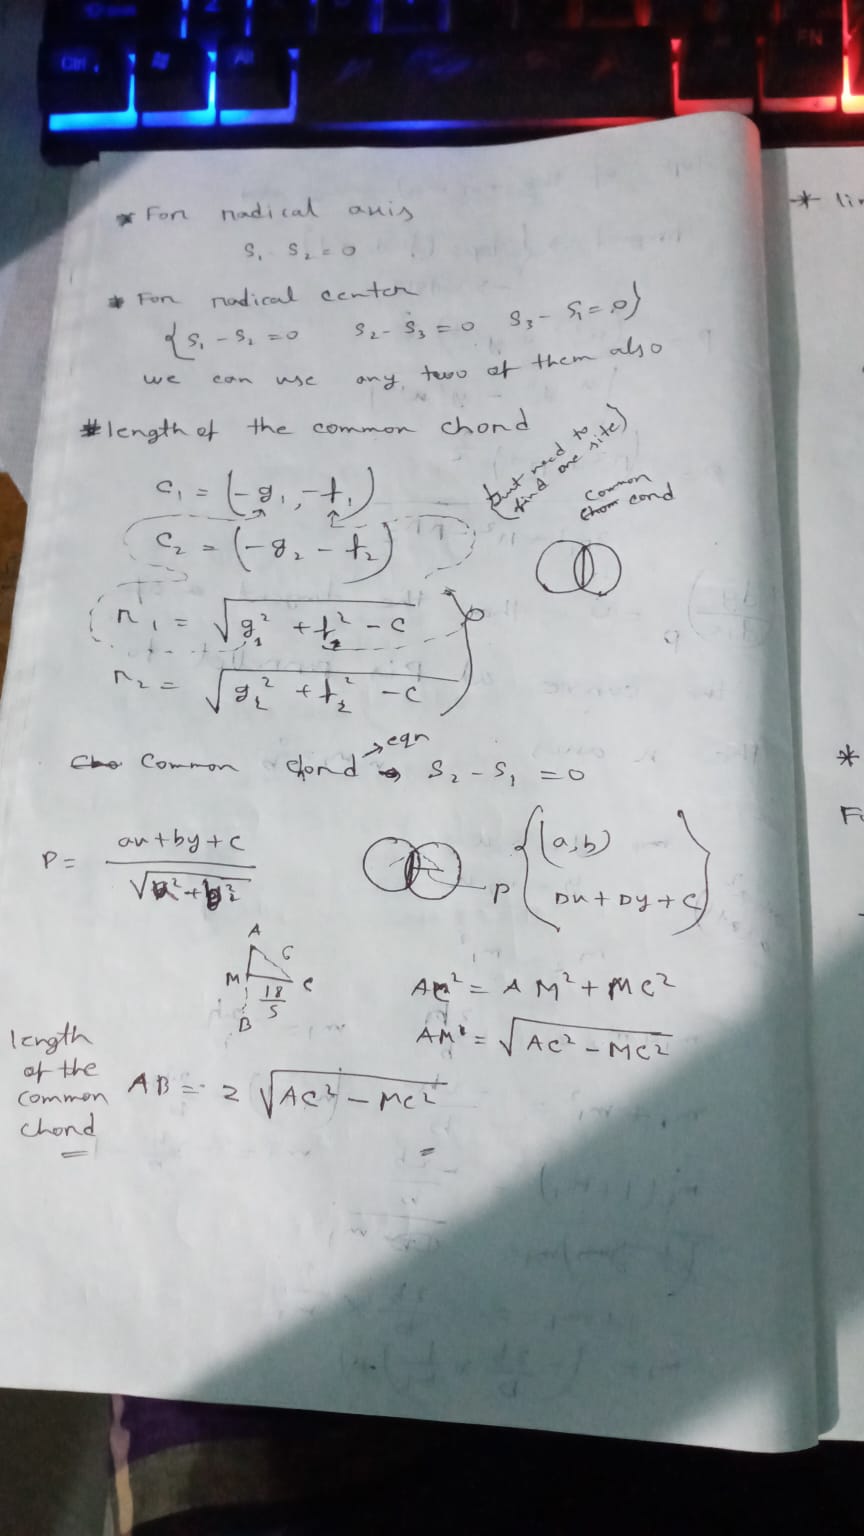 * For radical axis
S₁ S₂ = 0
* For radical center
{S₁ - S₂ = 0 S₂ - S₃ = 0 S₃ - S₁ = 0}
we can use any two of them also
# length of the common chord
(but need to find one site)
C₁ = (-g₁, -f₁)
common cond
C₂ = (-g₂ - f₂)
r₁ = √(g₁² + f₂² - c)
r₂ = √(g₂² + f₂² - c)
Common chord → eqn S₂ - S₁ = 0
P = (ax + by + c) / √(a² + b²)
P {(a, b)
Dx + Dy + C}
A
6
M C
18/5
B
AC² = AM² + MC²
AM² = √(AC² - MC²)
length of the common chord AB = 2 √(AC² - MC²)
* lin
*
Fo
Ctrl
Alt
FN